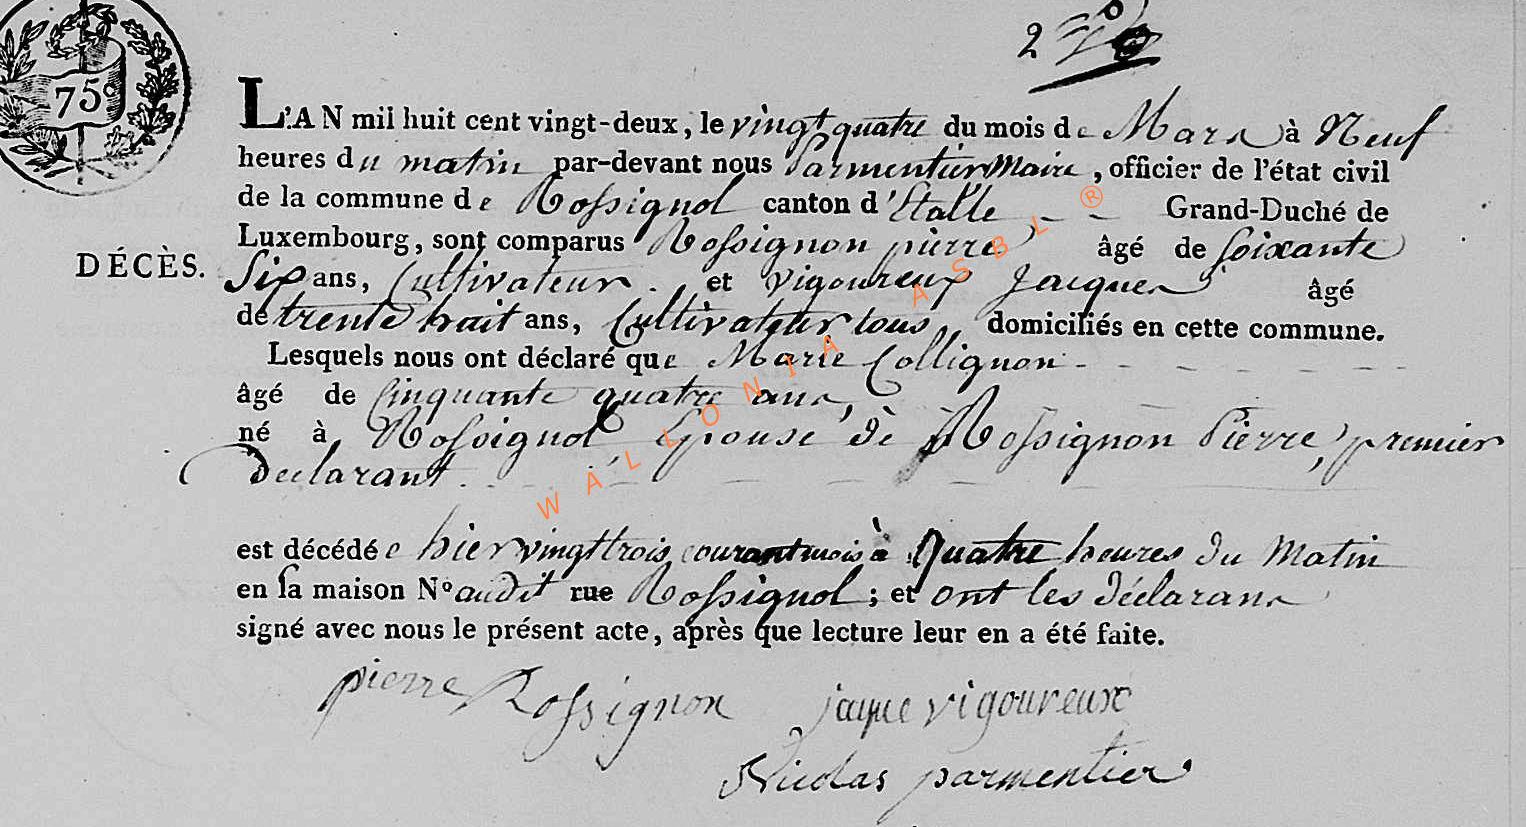 75c
2
L'AN mil huit cent vingt-deux, le vingt quatre du mois de Mars à Neuf
heures du matin par-devant nous Parmentier Maire, officier de l'état civil
de la commune de Rossignol canton d'Etalle - - Grand-Duché de
Luxembourg, sont comparus Rossignon pierre âgé de soixante
DÉCÈS.
Six ans, Cultivateur. et vigoureux Jacques âgé
de trente huit ans, Cultivateur tous domiciliés en cette commune.
Lesquels nous ont déclaré que Marie Collignon - - - - - - -
âgé de Cinquante quatre ans,
né à Rossignol Epouse de Rossignon Pierre, premier
declarant. - - - - - -
est décédée hier vingt trois courant mois à Quatre heures du Matin
en la maison N° audit rue Rossignol; et ont les déclarans
signé avec nous le présent acte, après que lecture leur en a été faite.
pierre Rossignon jaque vigoureux
Nicolas parmentier
WALLONIA ASBL ®